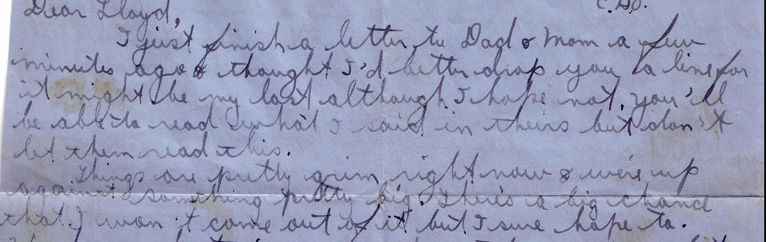 Dear Lloyd,
I just finish a letter to Dad & Mom a few
minutes ago & thought I'd better drop you a line for
it might be my last although I hope not. you'll
be able to read what I said in theirs but don't
let them read this.
Things are pretty grim right now & we're up
against something pretty big. There's a big chance
that I won't come out of it, but I sure hope to.